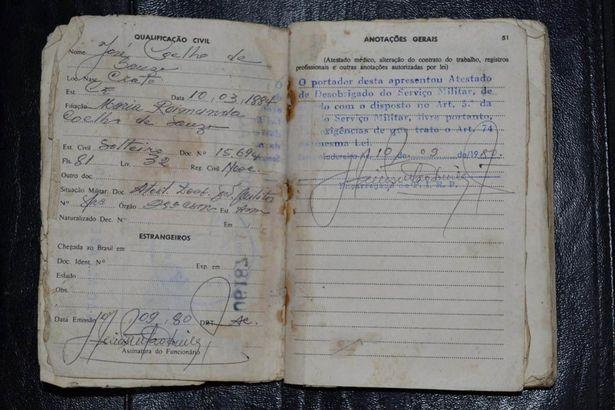 QUALIFICAÇÃO CIVIL
Nome José Coelho de
Souza
Loc. Nasc. Crato
Est. Data 10.03.1884
Filiação Maria Raimunda
Coelho de Souza
Est. Civil Solteiro Doc. Nº 15.694
Fls. 81 Liv. 32 Reg. Civil Nasc.
Outro doc.
Situação Militar: Doc.
Nº Órgão Est.
Naturalizado Dec. Nº Em
ESTRANGEIROS
Chegada ao Brasil em
Doc. Ident. Nº Exp. em
Estado
Obs.
Data Emissão 10/09.80 DRT Ac.
Assinatura do Funcionário
06187
ANOTAÇÕES GERAIS 51
(Atestado médico, alteração do contrato do trabalho, registros
profissionais e outras anotações autorizadas por lei)
O portador desta apresentou Atestado
de Desobrigado do Serviço Militar, de
do com o disposto no Art. 5.º da
do Serviço Militar, livre portanto,
exigências de que trato o Art. 74
mesma Lei.
10 de 09 de 19